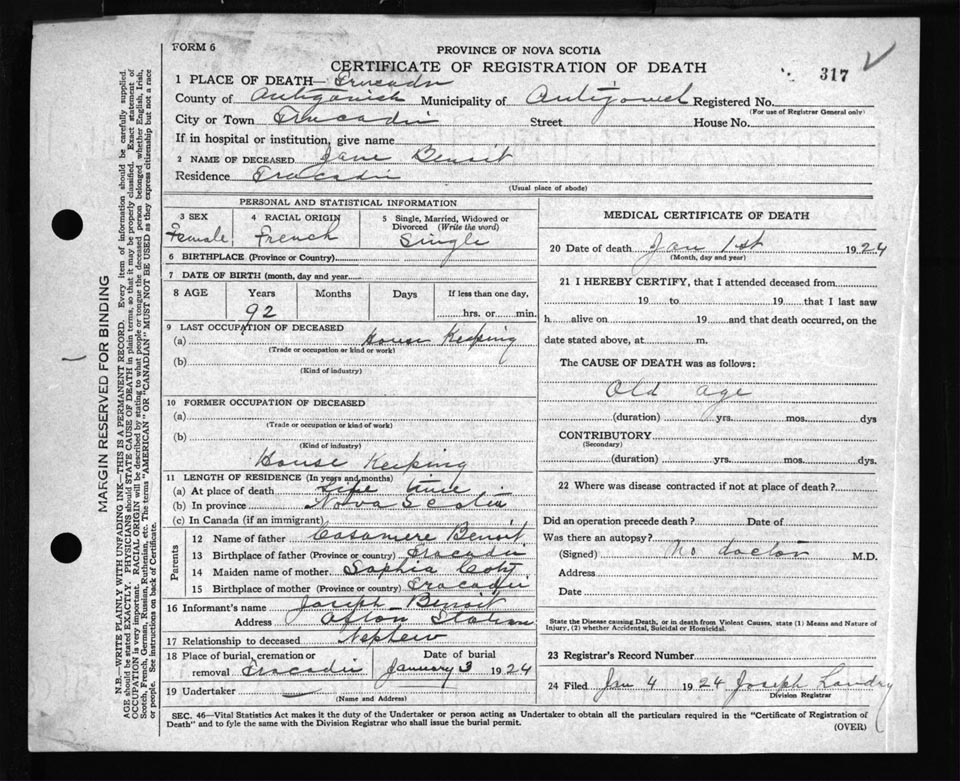 FORM 6
PROVINCE OF NOVA SCOTIA
CERTIFICATE OF REGISTRATION OF DEATH
317
1 PLACE OF DEATH— Tracadie
County of Antigonish Municipality of Antigonish Registered No.
(For use of Registrar General only)
City or Town Tracadie Street House No.
If in hospital or institution, give name
2 NAME OF DECEASED Jane Benoit
Residence Tracadie
(Usual place of abode)
PERSONAL AND STATISTICAL INFORMATION
3 SEX Female
4 RACIAL ORIGIN French
5 Single, Married, Widowed or Divorced (Write the word) Single
6 BIRTHPLACE (Province or Country)
7 DATE OF BIRTH (month, day and year)
8 AGE Years Months Days If less than one day,
92 hrs. or min.
9 LAST OCCUPATION OF DECEASED
(a) House Keeping
(Trade or occupation or kind or work)
(b)
(Kind of industry)
10 FORMER OCCUPATION OF DECEASED
(a)
(Trade or occupation or kind of work)
(b)
(Kind of industry)
House Keeping
11 LENGTH OF RESIDENCE (In years and months)
(a) At place of death Life time
(b) In province Nova Scotia
(c) In Canada (if an immigrant)
Parents
12 Name of father Casamere Benoit
13 Birthplace of father (Province or country) Tracadie
14 Maiden name of mother Sophia
15 Birthplace of mother (Province or country) Tracadie
16 Informant's name Joseph Benoit
Address Afton Station
17 Relationship to deceased Nephew
18 Place of burial, cremation or removal Tracadie
Date of burial January 3 1924
19 Undertaker
(Name and Address)
MEDICAL CERTIFICATE OF DEATH
20 Date of death Jan 1st 1924
(Month, day and year)
21 I HEREBY CERTIFY, that I attended deceased from
19 to 19 that I last saw
h alive on 19 and that death occurred, on the
date stated above, at m.
The CAUSE OF DEATH was as follows:
Old age
(duration) yrs. mos. dys
CONTRIBUTORY
(Secondary)
(duration) yrs. mos. dys.
22 Where was disease contracted if not at place of death?
Did an operation precede death? Date of
Was there an autopsy?
(Signed) No doctor M.D.
Address
Date
State the Disease causing Death, or in death from Violent Causes, state (1) Means and Nature of
Injury, (2) whether Accidental, Suicidal or Homicidal.
23 Registrar's Record Number
24 Filed Jan 4 1924 Joseph Landry
Division Registrar
SEC. 46—Vital Statistics Act makes it the duty of the Undertaker or person acting as Undertaker to obtain all the particulars required in the "Certificate of Registration of
Death" and to fyle the same with the Division Registrar who shall issue the burial permit.
(OVER)
MARGIN RESERVED FOR BINDING
N.B.—WRITE PLAINLY WITH UNFADING INK—THIS IS A PERMANENT RECORD. Every item of information should be carefully supplied.
AGE should be stated EXACTLY. PHYSICIANS should STATE CAUSE OF DEATH in plain terms, so that it may be properly classified. Exact statement of
OCCUPATION is very important. RACIAL ORIGIN will be described by stating to what people or tongue the deceased person belonged whether English, Irish,
Scotch, French, German, Russian, Ruthenian, etc. The terms "AMERICAN" OR "CANADIAN" MUST NOT BE USED as they express citizenship but not a race
or people. See instructions on back of Certificate.